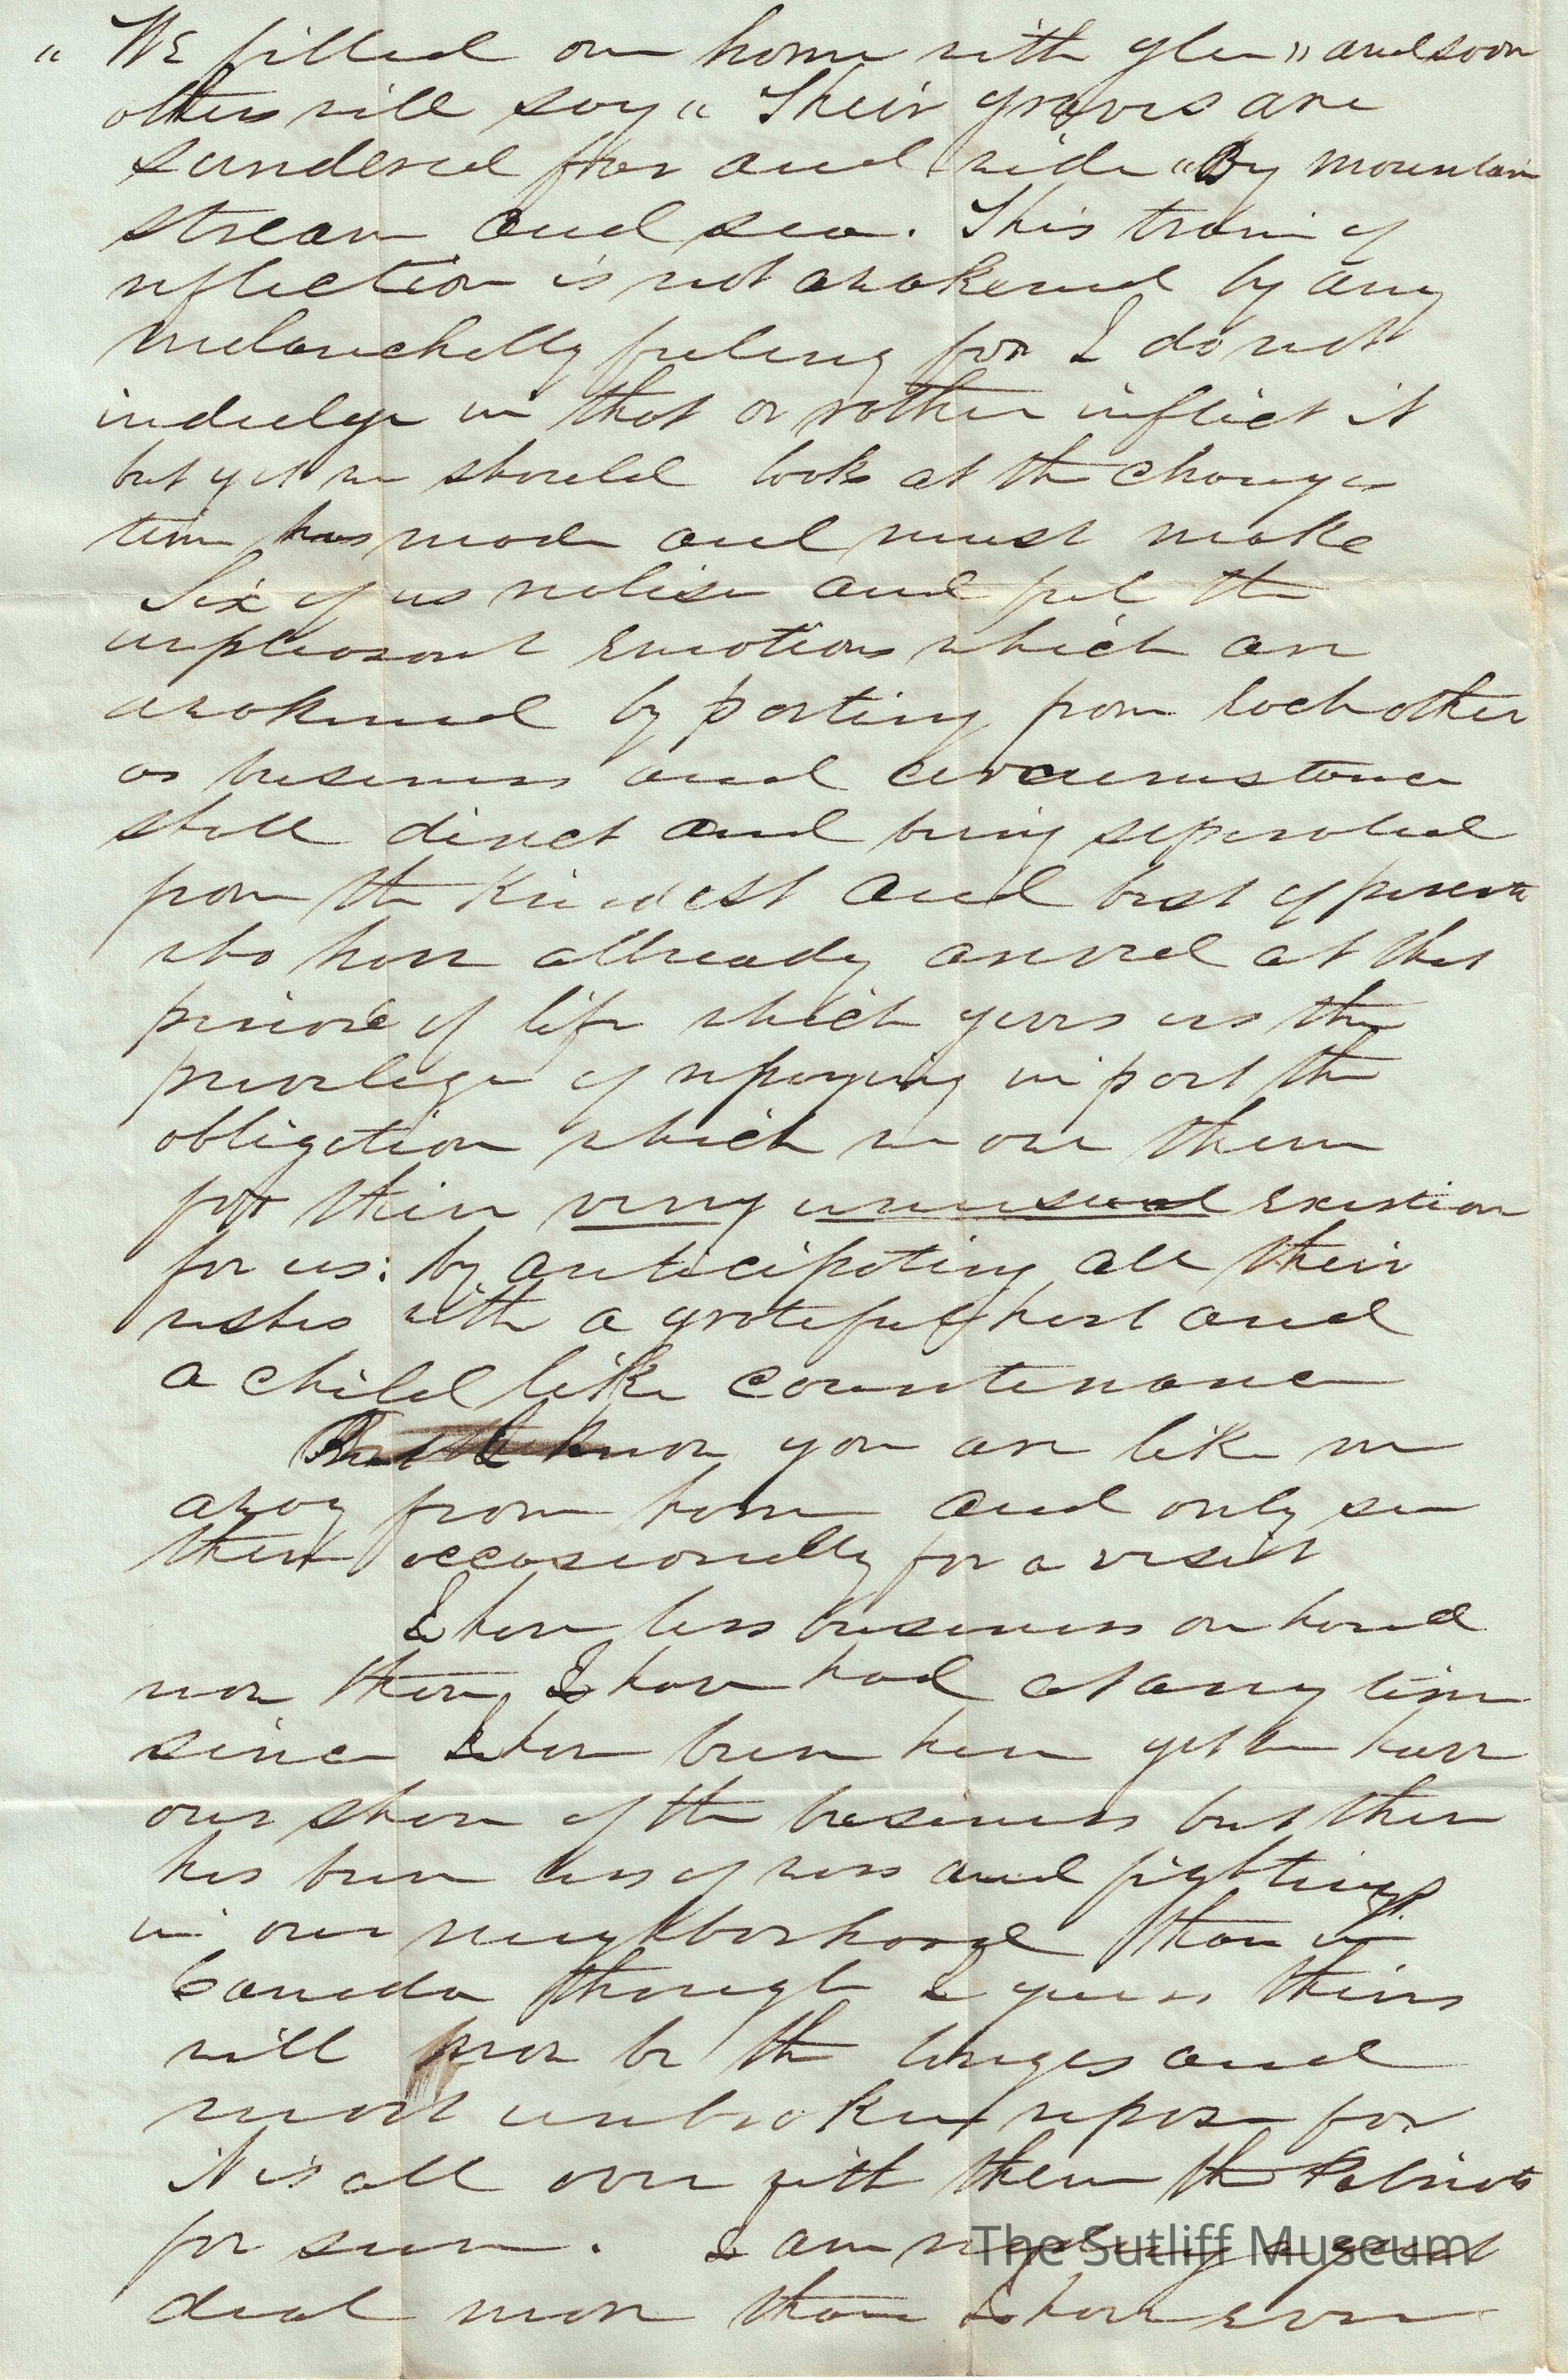 " We filled our home with glee" and soon
others will say " Their graves are
sundered far and wide " By mountain
stream and sea. This train of
reflection is not awakened by any
melanchelly feeling for I do not
indulge in that or rather inflict it
but yet we should look at the changes
time has made and must make
Six of us realise and feel the
unpleasant emotions which are
awakened by parting from each other
as business and circumstance
shall direct and being seperated
from the kindest and best of parents
who have allready arived at that
period of life which gives us the
privilege of repaying in part the
obligation which we owe them
for their very unusual exertion
for us: by anticipating all their
wishes with a grateful hart and
a child like countenance
But know you are like me
away from home and only see
them occasionally for a visit
I have less business on hand
now than I have had at any time
since I have been here yet we have
our share of the business but there
has been less of wars and fighting
in our neighborhood than in
Canada though I guess theirs
will now be the longest and
most unbroken repose for
it is all over with them the Patriots
for sure. I am reading a good
deal more than I have ever
The Sutliff Museum